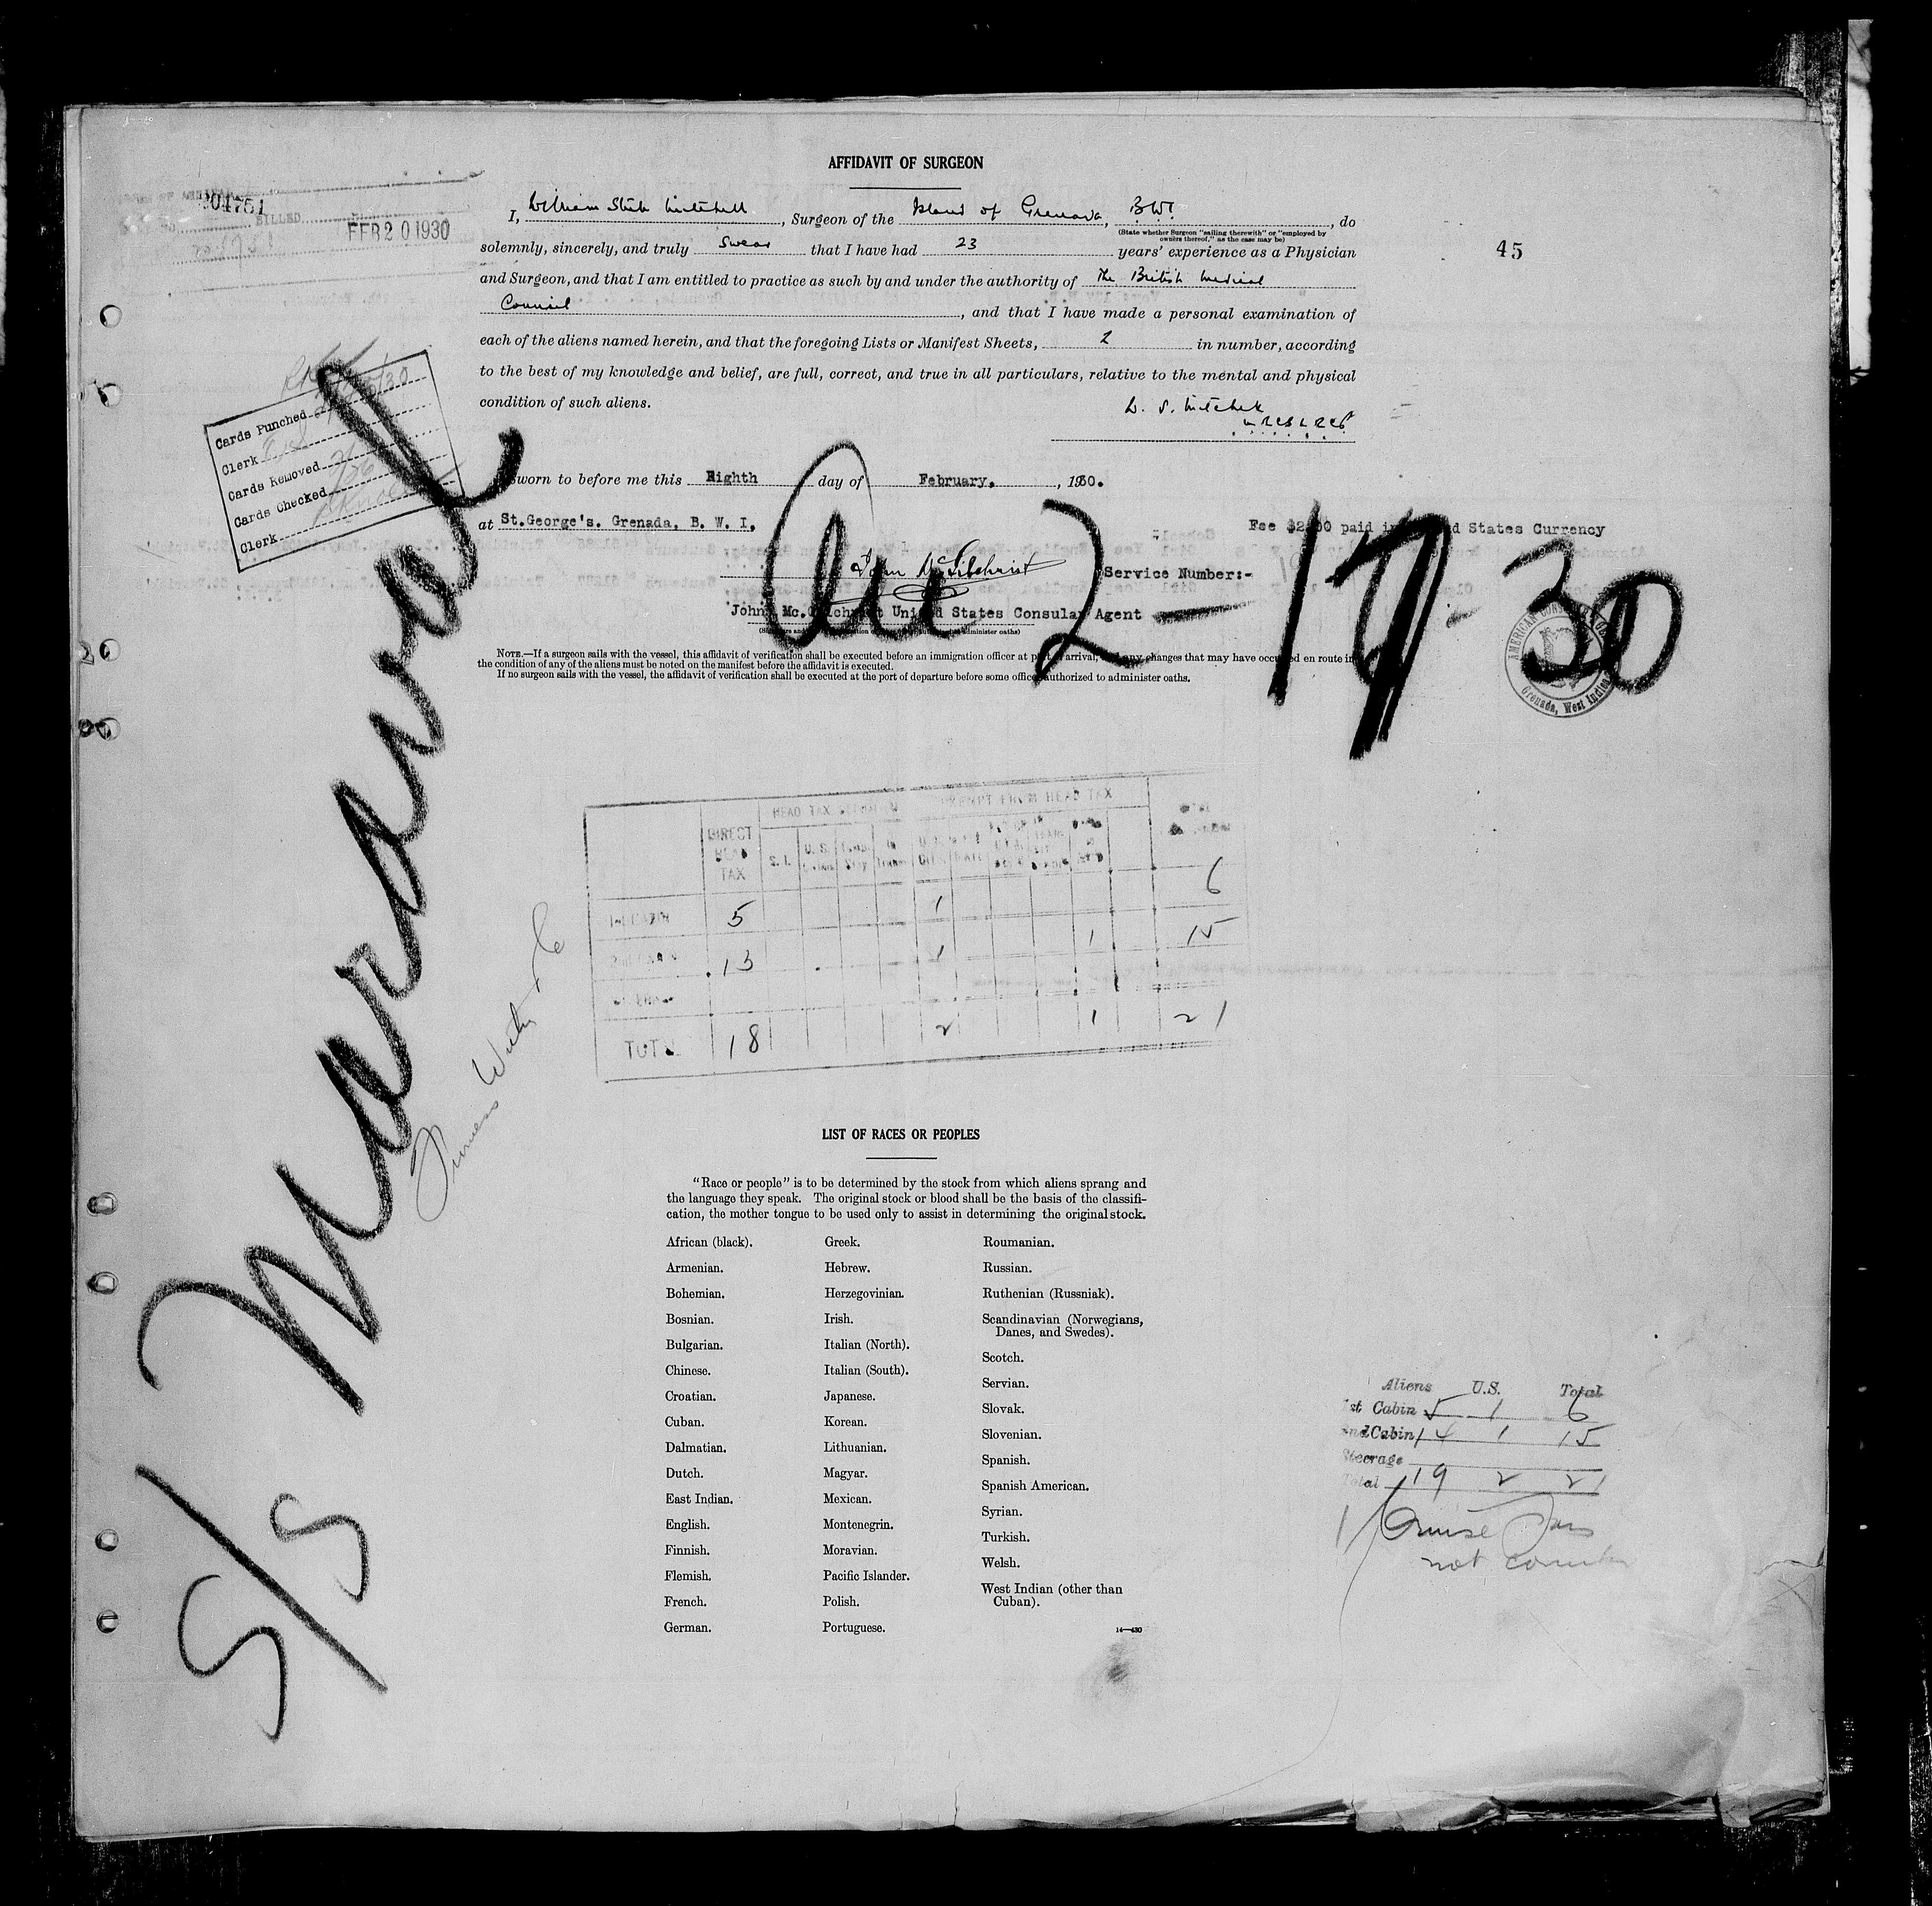 AFFIDAVIT OF SURGEON
I, William Mitchell, Surgeon of the Island of Grenada, B.W.I., do
(State whether Surgeon "sailing therewith" or "employed by
owners thereof," as the case may be)
solemnly, sincerely, and truly swear that I have had 23 years' experience as a Physician
and Surgeon, and that I am entitled to practice as such by and under the authority of The British Medical
Council, and that I have made a personal examination of
each of the aliens named herein, and that the foregoing Lists or Manifest Sheets, 2 in number, according
to the best of my knowledge and belief, are full, correct, and true in all particulars, relative to the mental and physical
condition of such aliens.
W. S. Mitchell
Sworn to before me this Eighth day of February, 1930.
at St.George's. Grenada, B. W. I.
Fee $2.00 paid in United States Currency
John McGilchrist
Service Number:-
John Mc.Gilchrist United States Consular Agent
NOTE.—If a surgeon sails with the vessel, this affidavit of verification shall be executed before an immigration officer at port of arrival, and any changes that may have occurred en route in
the condition of any of the aliens must be noted on the manifest before the affidavit is executed.
If no surgeon sails with the vessel, the affidavit of verification shall be executed at the port of departure before some officer authorized to administer oaths.
45
BILLED
FEB 20 1930
Cards Punched
Clerk
Cards Removed
Cards Checked
Clerk
S/S Maraval
Arr 2-17-30
AMERICAN CONSULAR
Grenada, West Indies
Furness Withy & Co
HEAD TAX EXEMPT FROM HEAD TAX
DIRECT HEAD TAX S. I. U. S.
1st CABIN 5 1 6
2nd CABIN 13 1 1 15
TOTAL 18 2 1 21
LIST OF RACES OR PEOPLES
"Race or people" is to be determined by the stock from which aliens sprang and
the language they speak. The original stock or blood shall be the basis of the classifi-
cation, the mother tongue to be used only to assist in determining the original stock.
African (black).
Armenian.
Bohemian.
Bosnian.
Bulgarian.
Chinese.
Croatian.
Cuban.
Dalmatian.
Dutch.
East Indian.
English.
Finnish.
Flemish.
French.
German.
Greek.
Hebrew.
Herzegovinian.
Irish.
Italian (North).
Italian (South).
Japanese.
Korean.
Lithuanian.
Magyar.
Mexican.
Montenegrin.
Moravian.
Pacific Islander.
Polish.
Portuguese.
Roumanian.
Russian.
Ruthenian (Russniak).
Scandinavian (Norwegians,
Danes, and Swedes).
Scotch.
Servian.
Slovak.
Slovenian.
Spanish.
Spanish American.
Syrian.
Turkish.
Welsh.
West Indian (other than
Cuban).
14—430
Aliens U.S. Total
1st Cabin 5 1 6
2nd Cabin 14 1 15
Steerage
Total 19 2 21
1 Cruise Pass
not